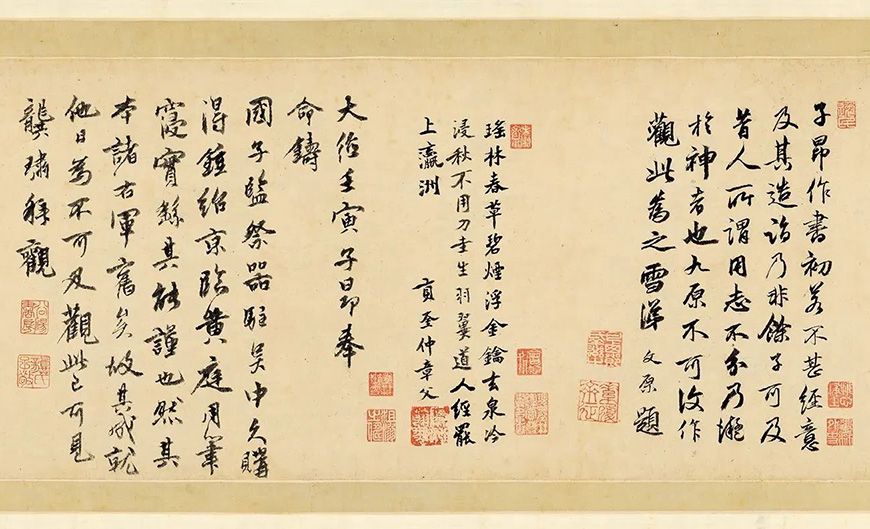 子昂作書初若不甚經意
及其造詣乃非餘子可及
昔人所謂用志不分乃凝
於神者也九原不可復作
觀此為之雪涕 文原題
瑤林春草碧煙浮金鑰玄泉冷
浸秋不用刀圭生羽翼道人經罷
上瀛洲 貢奎仲章父
大德壬寅子昂奉
命鑄
國子監祭器駐吳中久購
得鍾紹京臨黃庭用筆
寖實繇其能謹也然其
本諸右軍舊矣故其成就
他日為不可及觀此已可見
龔璛拜觀